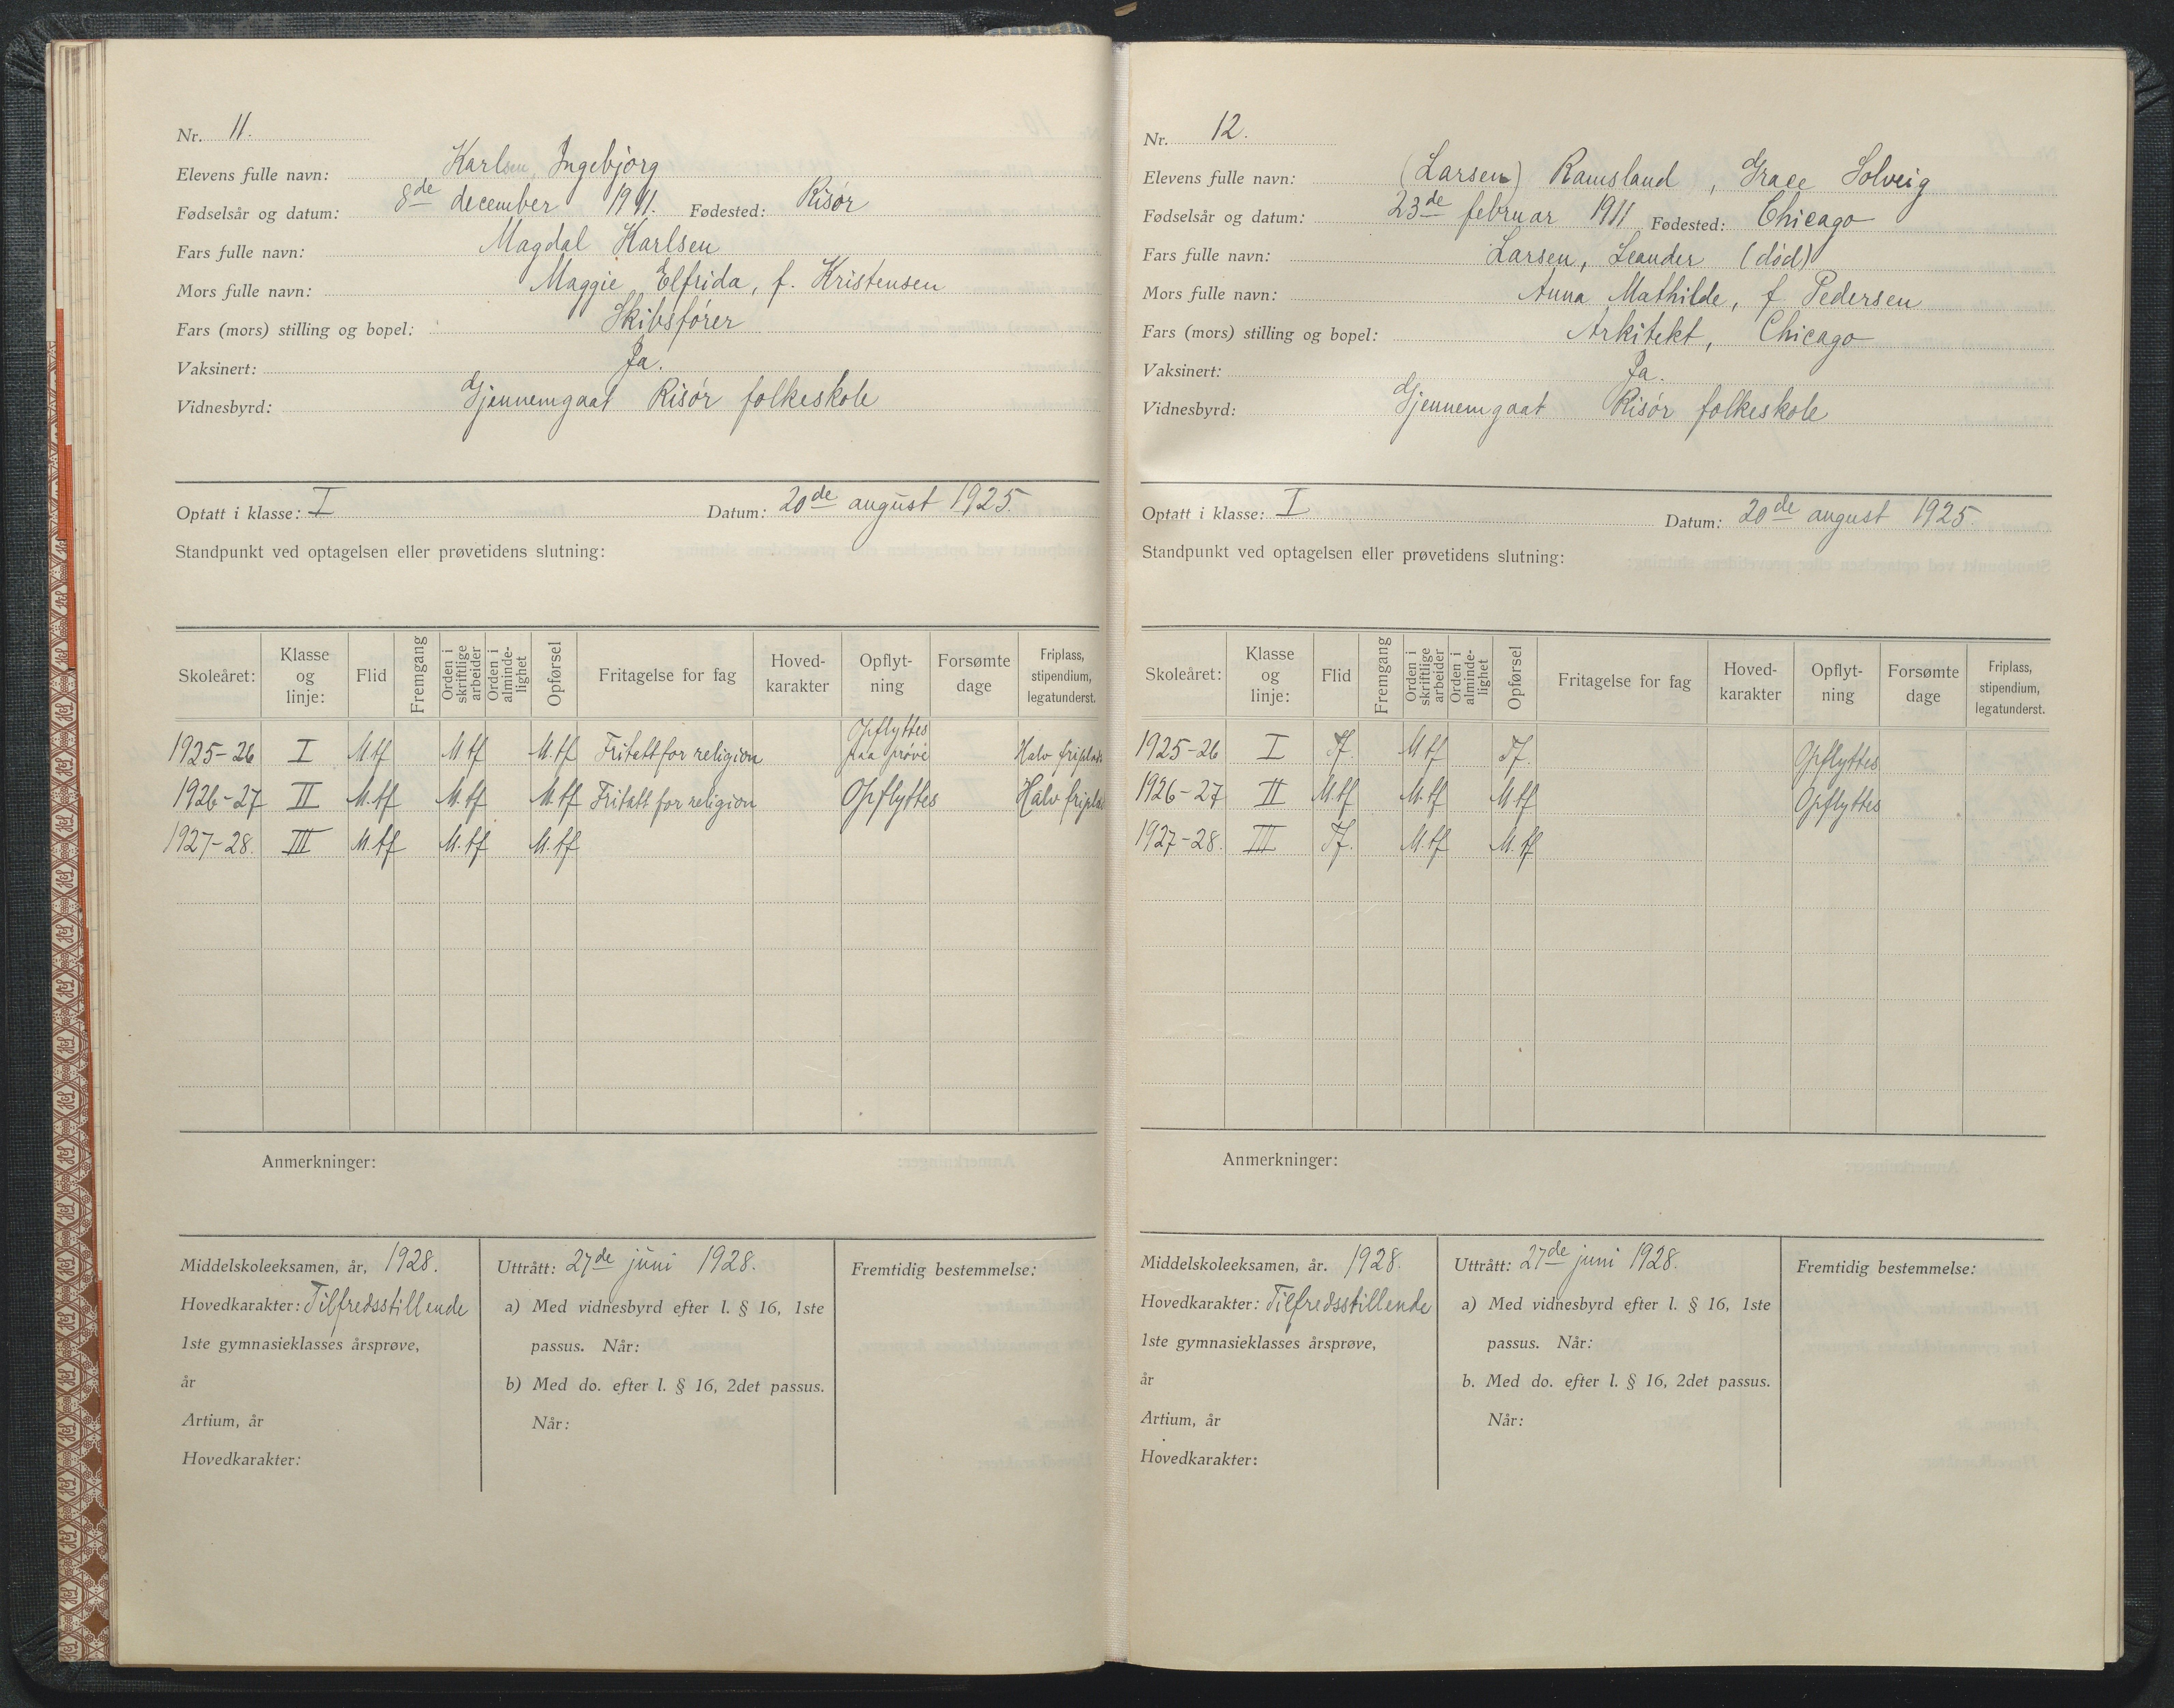 Nr. 11.
Elevens fulle navn: Karlsen, Ingebjørg
Fødselsår og datum: 8de december 1911. Fødested: Risør
Fars fulle navn: Magdal Karlsen
Mors fulle navn: Maggie Elfrida, f. Kristensen
Fars (mors) stilling og bopel: Skibsfører
Vaksinert: Ja.
Vidnesbyrd: Gjennemgaat Risør folkeskole
Optatt i klasse: I Datum: 20de august 1925.
Standpunkt ved optagelsen eller prøvetidens slutning:
Skoleåret: Klasse og linje: Flid Fremgang Orden i skriftlige arbeider Orden i almindelighet Opførsel Fritagelse for fag Hoved-karakter Opflyt-ning Forsømte dage Friplass, stipendium, legatunderst.
1925-26 I M.tf M.tf M.tf Fritatt for religion Opflyttes paa prøve Halv friplass
1926-27 II M.tf M.tf M.tf Fritatt for religion Opflyttes Halv friplass
1927-28. III M.tf M.tf M.tf
Anmerkninger:
Middelskoleeksamen, år, 1928.
Hovedkarakter: Tilfredsstillende
1ste gymnasieklasses årsprøve,
år
Artium, år
Hovedkarakter:
Uttrått: 27de juni 1928.
a) Med vidnesbyrd efter l. § 16, 1ste
passus. Når:
b) Med do. efter l. § 16, 2det passus.
Når:
Fremtidig bestemmelse:
Nr. 12.
Elevens fulle navn: (Larsen) Ramsland, Grace Solveig
Fødselsår og datum: 23de februar 1911 Fødested: Chicago
Fars fulle navn: Larsen, Leander (død)
Mors fulle navn: Anna Mathilde, f. Pedersen
Fars (mors) stilling og bopel: Arkitekt, Chicago
Vaksinert: Ja.
Vidnesbyrd: Gjennemgaat Risør folkeskole
Optatt i klasse: I Datum: 20de august 1925.
Standpunkt ved optagelsen eller prøvetidens slutning:
Skoleåret: Klasse og linje: Flid Fremgang Orden i skriftlige arbeider Orden i alminde-lighet Opførsel Fritagelse for fag Hoved-karakter Opflyt-ning Forsømte dage Friplass, stipendium, legatunderst.
1925-26 I Tf. M.tf Tf. Opflyttes
1926-27 II M.tf M.tf M.tf Opflyttes
1927-28. III Tf. M.tf M.tf
Anmerkninger:
Middelskoleeksamen, år. 1928.
Hovedkarakter: Tilfredsstillende
1ste gymnasieklasses årsprøve,
år
Artium, år
Hovedkarakter:
Uttrått: 27de juni 1928.
a) Med vidnesbyrd efter l. § 16, 1ste
passus. Når:
b. Med do. efter l. § 16, 2det passus.
Når:
Fremtidig bestemmelse: